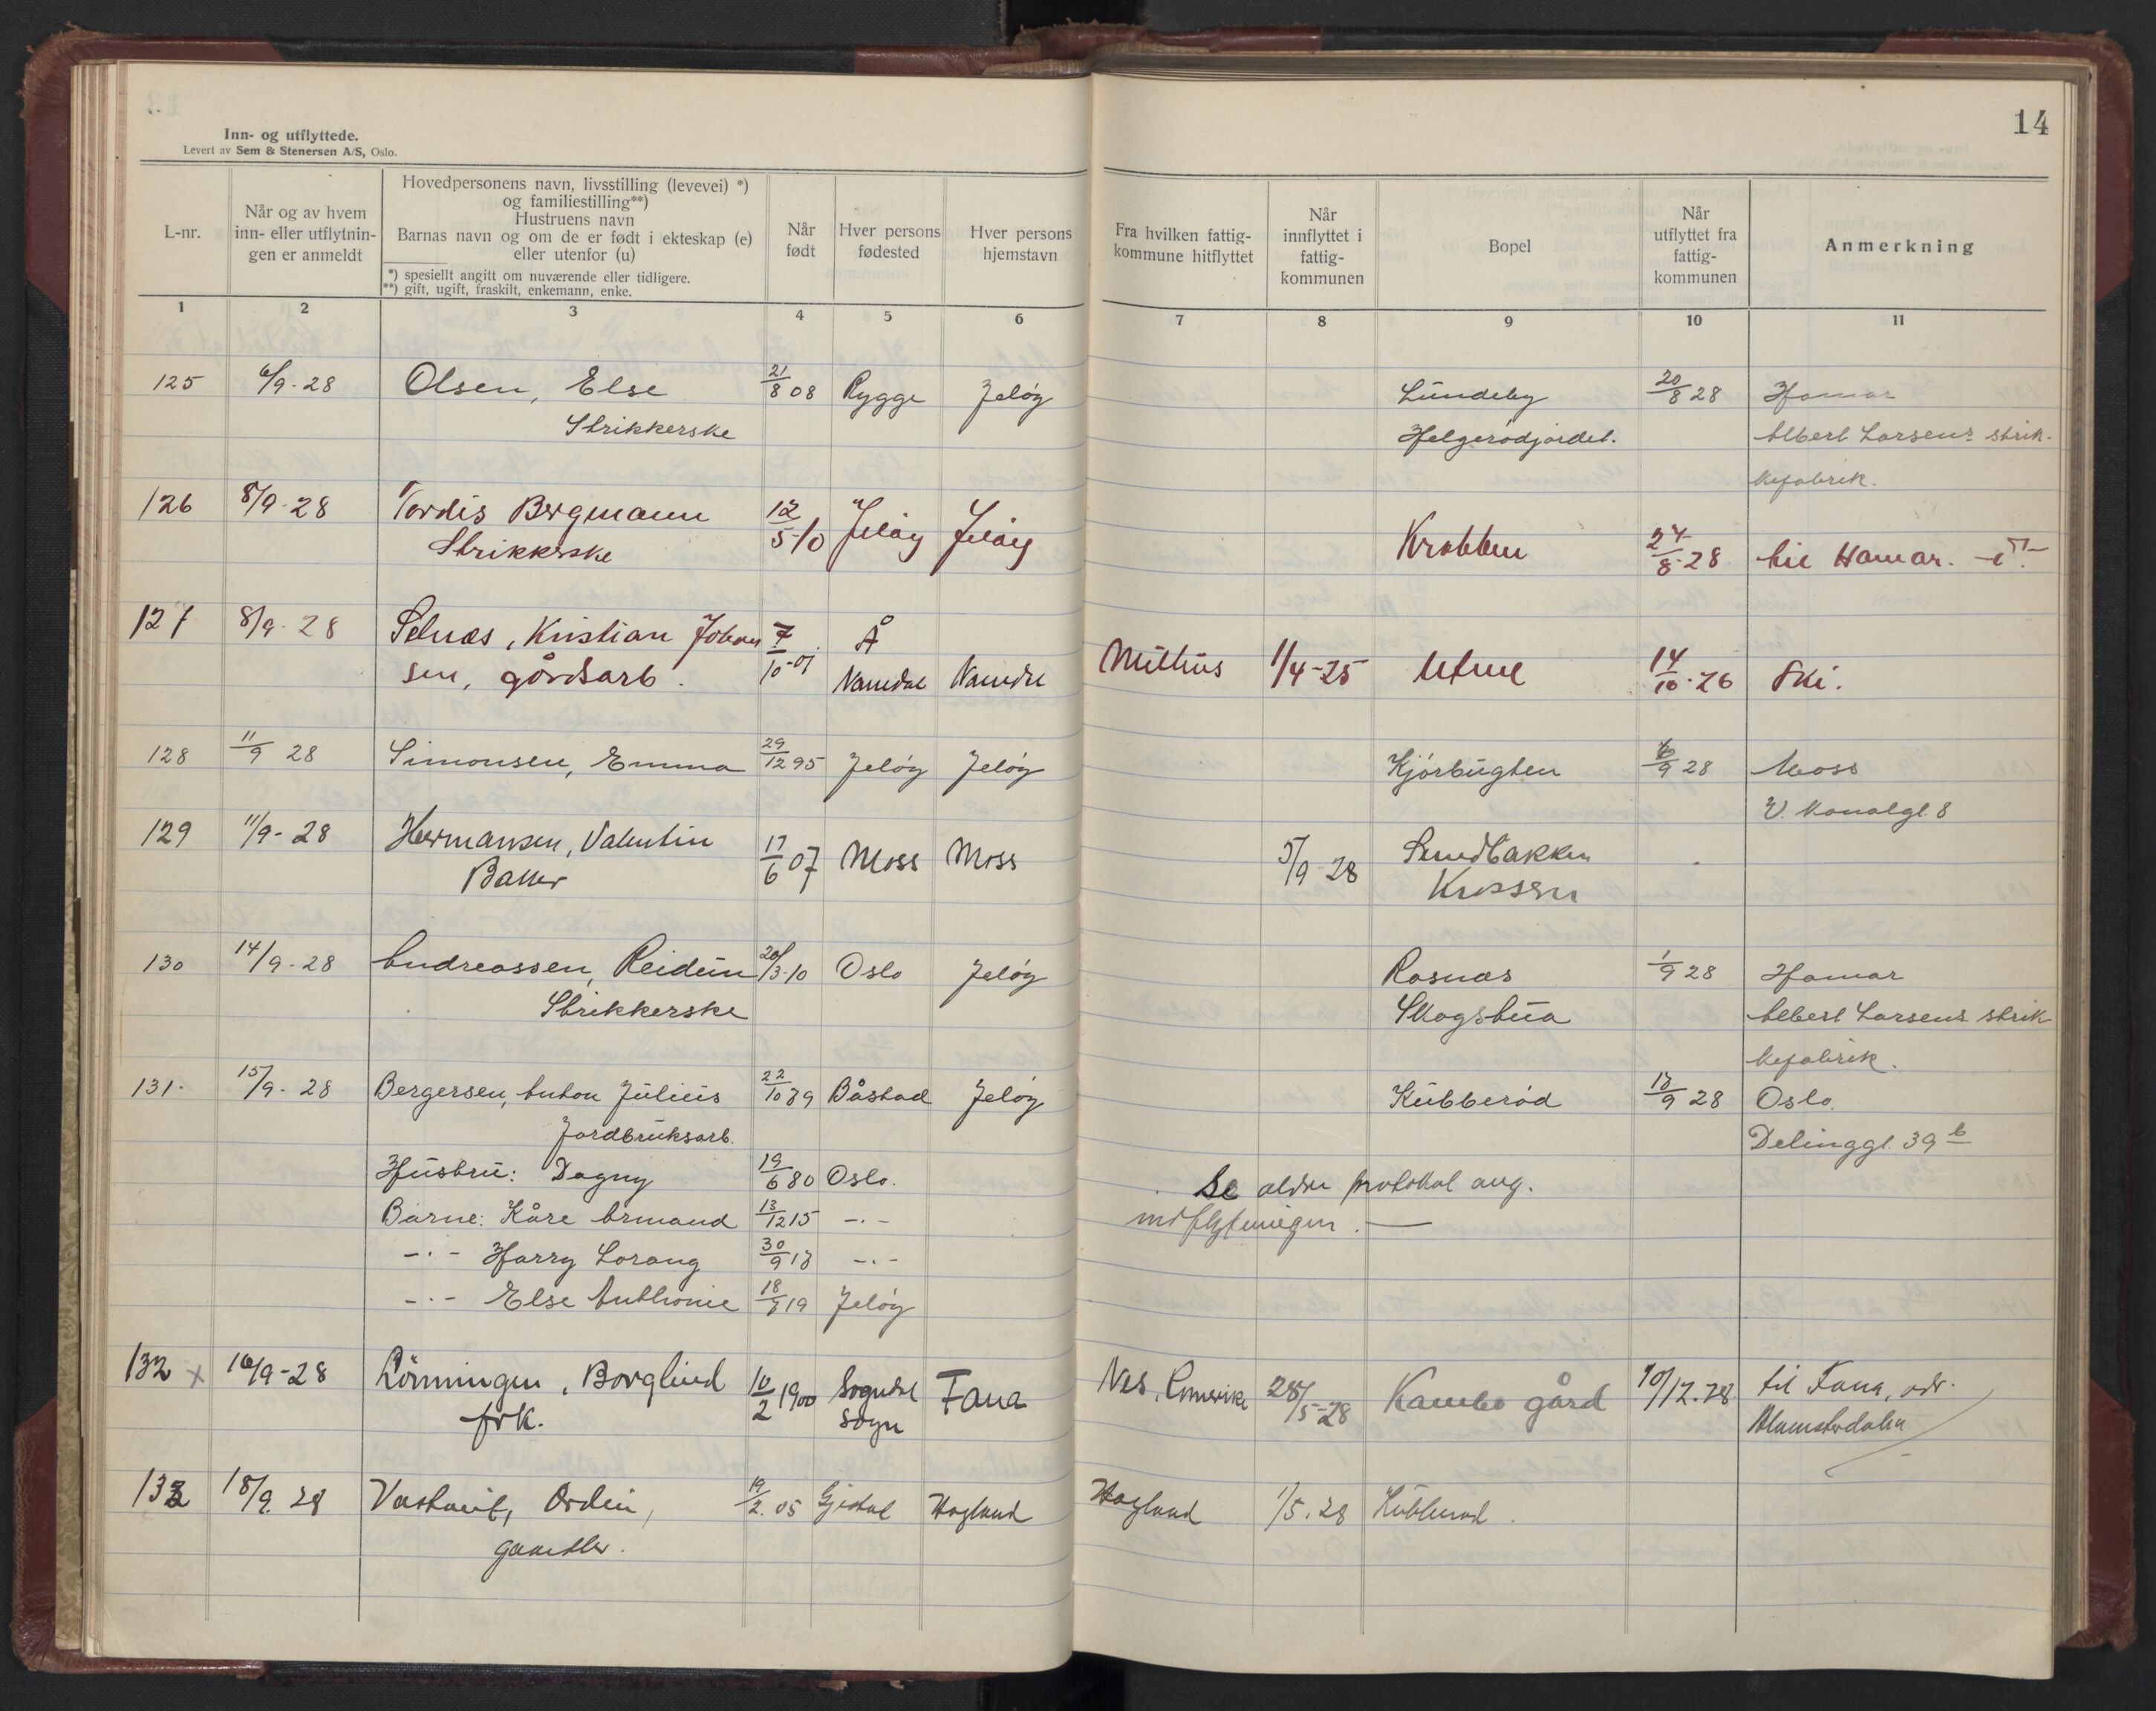 14
Inn- og utflyttede.
Levert av Sem & Stenersen A/S, Oslo.
L-nr.
Når og av hvem
inn- eller utflytnin-
gen er anmeldt
Hovedpersonens navn, livsstilling (levevei) *)
og familiestilling**)
Hustruens navn
Barnas navn og om de er født i ekteskap (e)
eller utenfor (u)
*) spesiellt angitt om nuværende eller tidligere.
**) gift, ugift, fraskilt, enkemann, enke.
Når
født
Hver persons
fødested
Hver persons
hjemstavn
Fra hvilken fattig-
kommune hitflyttet
Når
innflyttet i
fattig-
kommunen
Bopel
Når
utflyttet fra
fattig-
kommunen
Anmerkning
1 2 3 4 5 6 7 8 9 10 11
125 6/9-28 Olsen, Else 21/8 08 Rygge Jeløy Lundeby 20/8 28 Hamar
Strikkerske Helgerødjordet. Albert Larsens strik-
kefabrik.
126 8/9-28 Tordis Bergmann 12/5-10 Jeløy Jeløy Krabben 24/8-28 til Hamar.
Strikkerske
127 8/9-28 Selnæs, Kristian Johan 7/10-01 Å
sen, gårdsarb. Namdal Namdal 1/4-25 14/10-26 Ski.
128 11/9 28 Simonsen, Emma 29/12 95 Jeløy Jeløy Kjørbugten /9 28 Moss
V. Kanalgt. 8
129 11/9-28 Hermansen, Valentin 17/6 07 Moss Moss 5/9-28 Sundbakken
Baker Krossen
130 14/9-28 Andreassen, Reidun 20/3-10 Oslo Jeløy Rosnæs 1/9 28 Hamar
Strikkerske Skogsbua Albert Larsens strik
kefabrik.
131. 15/9-28 Bergersen, Anton Julius 22/10 89 Båstad Jeløy Kubberød 13/9 28 Oslo.
Jordbruksarb. Delinggt. 39 b
Hustru: Dagny 19/6 80 Oslo. Se aldre protokol ang.
Barne: Kåre Armand 13/12 15 -.- indflytningen. —
-.- Harry Lorang 30/9 17 -.-
-.- Else Anthonie 18/9 19 Jeløy
132 x 16/9-28 Rönningen, Borglind 10/2 1900 Sogndal Fana Nes, Romerike 28/5-28 Kambo gård 10/12.28 til Fana, adr.
frk. Sogn
133 18/9. 28 19/2. 05 Gjesdal Høgland Høgland 1/5. 28 Kubberød.